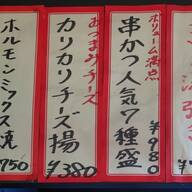 ボリューム満点
串かつ人気7種盛
¥980
あつまみチーズ
カリカリチーズ揚
¥380
ホルモンミックス焼
¥750